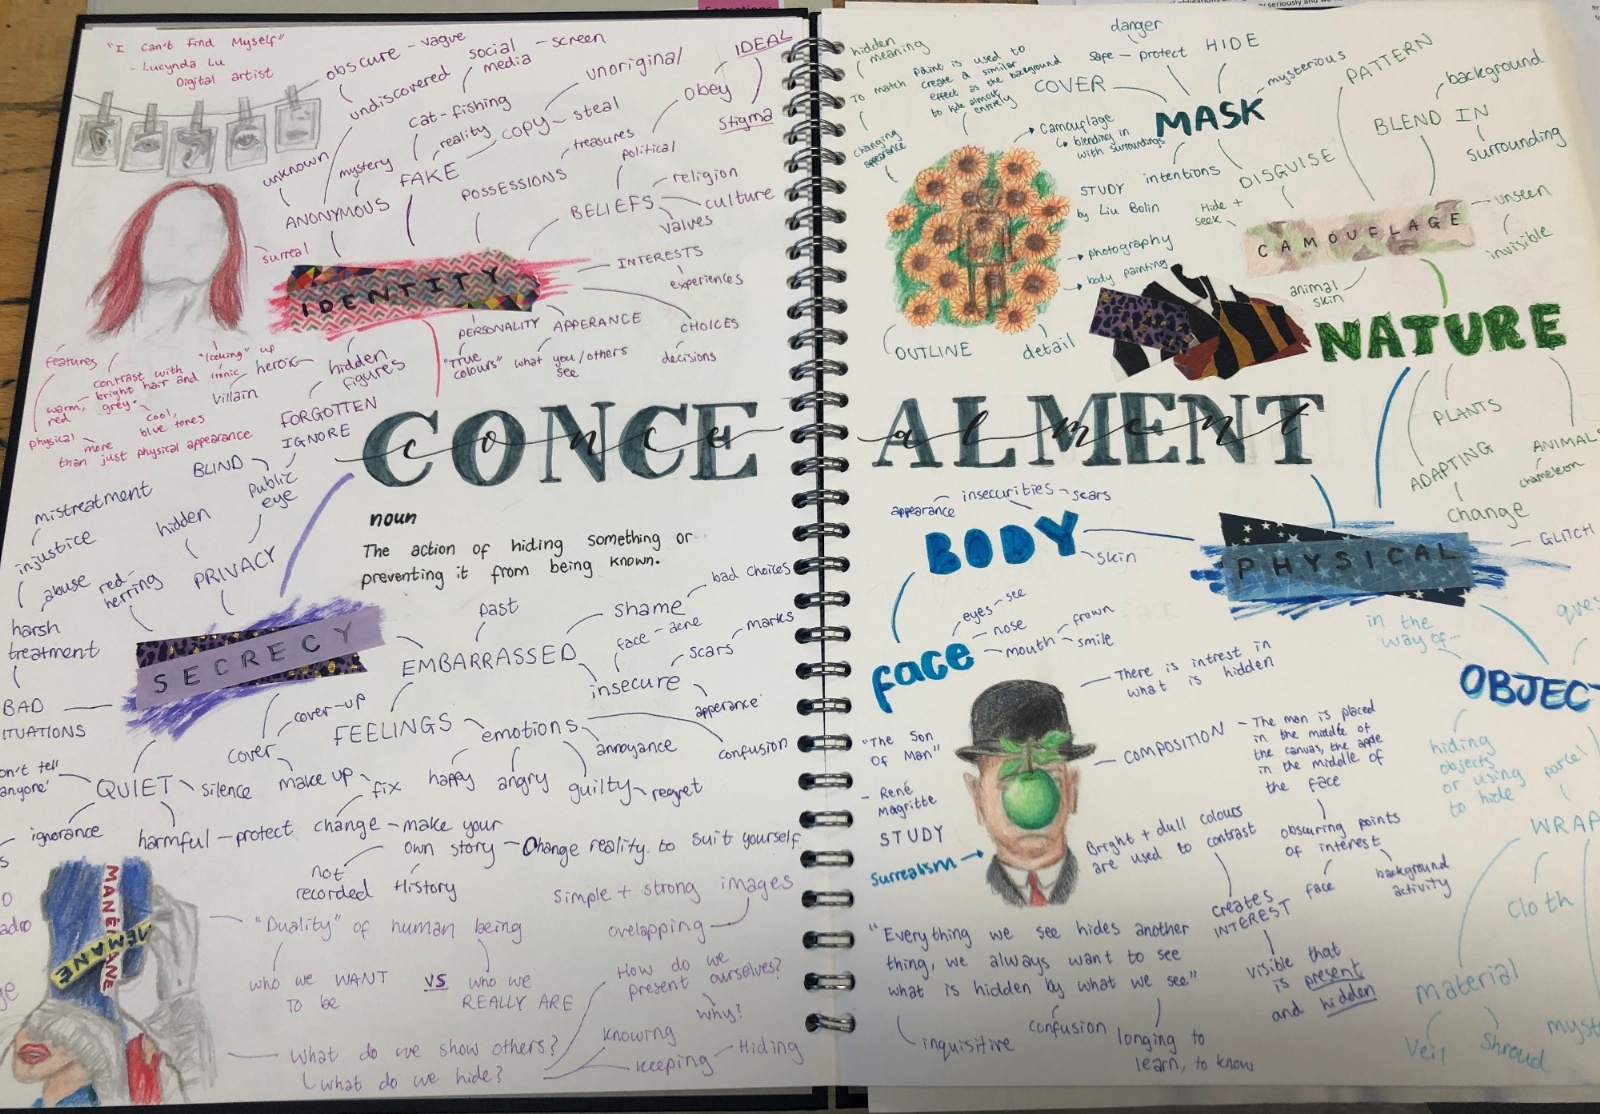 "I Can't Find Myself"
- Lucynda Lu
Digital artist
obscure - vague
social media - screen
undiscovered
cat-fishing
reality
unoriginal
COPY - steal
IDEAL
obey
Stigma
unknown
mystery
FAKE
treasures
political
POSSESSIONS
ANONYMOUS
BELIEFS
religion
culture
values
surreal
IDENTITY
INTERESTS
experiences
PERSONALITY
APPERANCE
CHOICES
"True colours"
what you/others see
decisions
features
contrast with
bright hair and
warm, red
grey.
cool,
blue tones
physical
more
than just physical appearance
"looking" up
ironic
heroic
villain
hidden figures
FORGOTTEN
IGNORE
BLIND
Public eye
CONCE
conce
noun
The action of hiding something or
preventing it from being known.
mistreatment
injustice
abuse
harsh treatment
BAD
ITUATIONS
hidden
red-herring
PRIVACY
SECRECY
past
shame
bad choices
face - acne
marks
EMBARRASSED
scars
insecure
apperance
cover-up
cover
FEELINGS
emotions
annoyance
confusion
make up
fix
happy
angry
guilty
regret
on't tell
anyone'
QUIET
silence
ignorance
harmful - protect
change - make your
own story - Change reality to suit yourself
not recorded
History
MANEMANE
MEMANE
"Duality" of human being
who we WANT
TO be
VS
who we
REALLY ARE
simple + strong images
ovelapping
How do we
present ourselves?
why?
What do we show others?
what do we hide?
knowing
keeping - Hiding
hidden meaning
To match
Paint is used to
create a similar
effect as the background
to hide almost
entirely
changing appearance
danger
safe - protect
HIDE
COVER
MASK
mysterious
PATTERN
background
BLEND IN
surrounding
Camouflage
blending in
with surroundings
STUDY
by Liu Bolin
intentions
DISGUISE
Hide + seek
CAMOUFLAGE
unseen
invisible
photography
body painting
animal skin
OUTLINE
detail
NATURE
PLANTS
ADAPTING
change
ANIMALS
chameleon
ALMENT
alment
appearance
insecurities - scars
BODY
skin
PHYSICAL
GLITCH
eyes - see
nose
mouth
frown
smile
face
in the
way of...
ques
OBJEC
There is intrest in
what is hidden
"The Son
Of Man"
- René
Magritte
STUDY
Surrealism
COMPOSITION - The man is placed
in the middle of
the canvas, the apple
in the middle of
the face
Bright + dull colours
are used to contrast
obscuring points
of interest
face
background
activity
creates
INTEREST
visible that
is present
and hidden
hiding
objects
or using
to hide
parcel
WRAP
cloth
Material
Veil
Shroud
myst
"Everything we see hides another
thing, we always want to see
what is hidden by what we see"
inquisitive
confusion
longing to
learn, to know